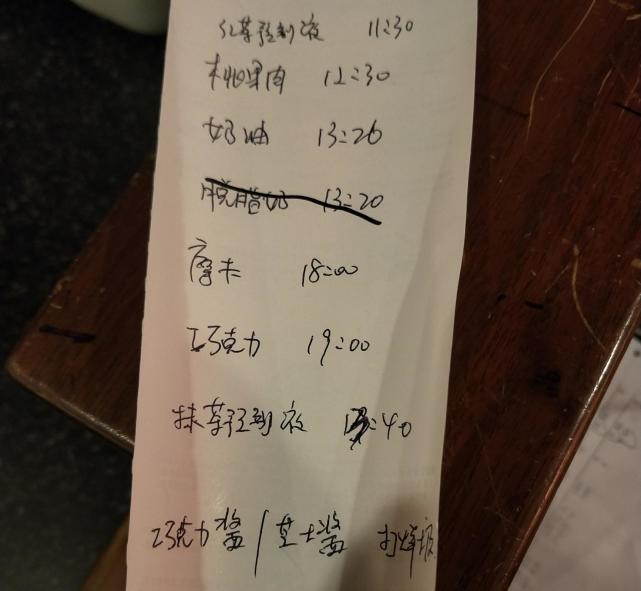 红茶轻制液 11:30
桃果肉 12:30
奶油 13:26
脱脂奶 13:20
摩卡 18:00
巧克力 19:00
抹茶轻制液 :40
巧克力酱/芝士酱 打烊